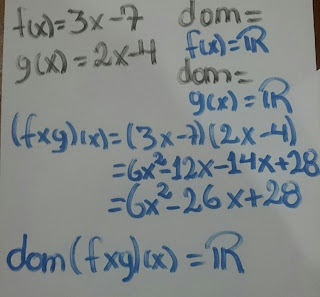 f(x)=3x-7
g(x)=2x-4
dom=
f(x)=ℝ
dom=
g(x)=ℝ
(fxg)(x)=(3x-7)(2x-4)
=6x²-12x-14x+28
=6x²-26x+28
dom(fxg)(x)=ℝ